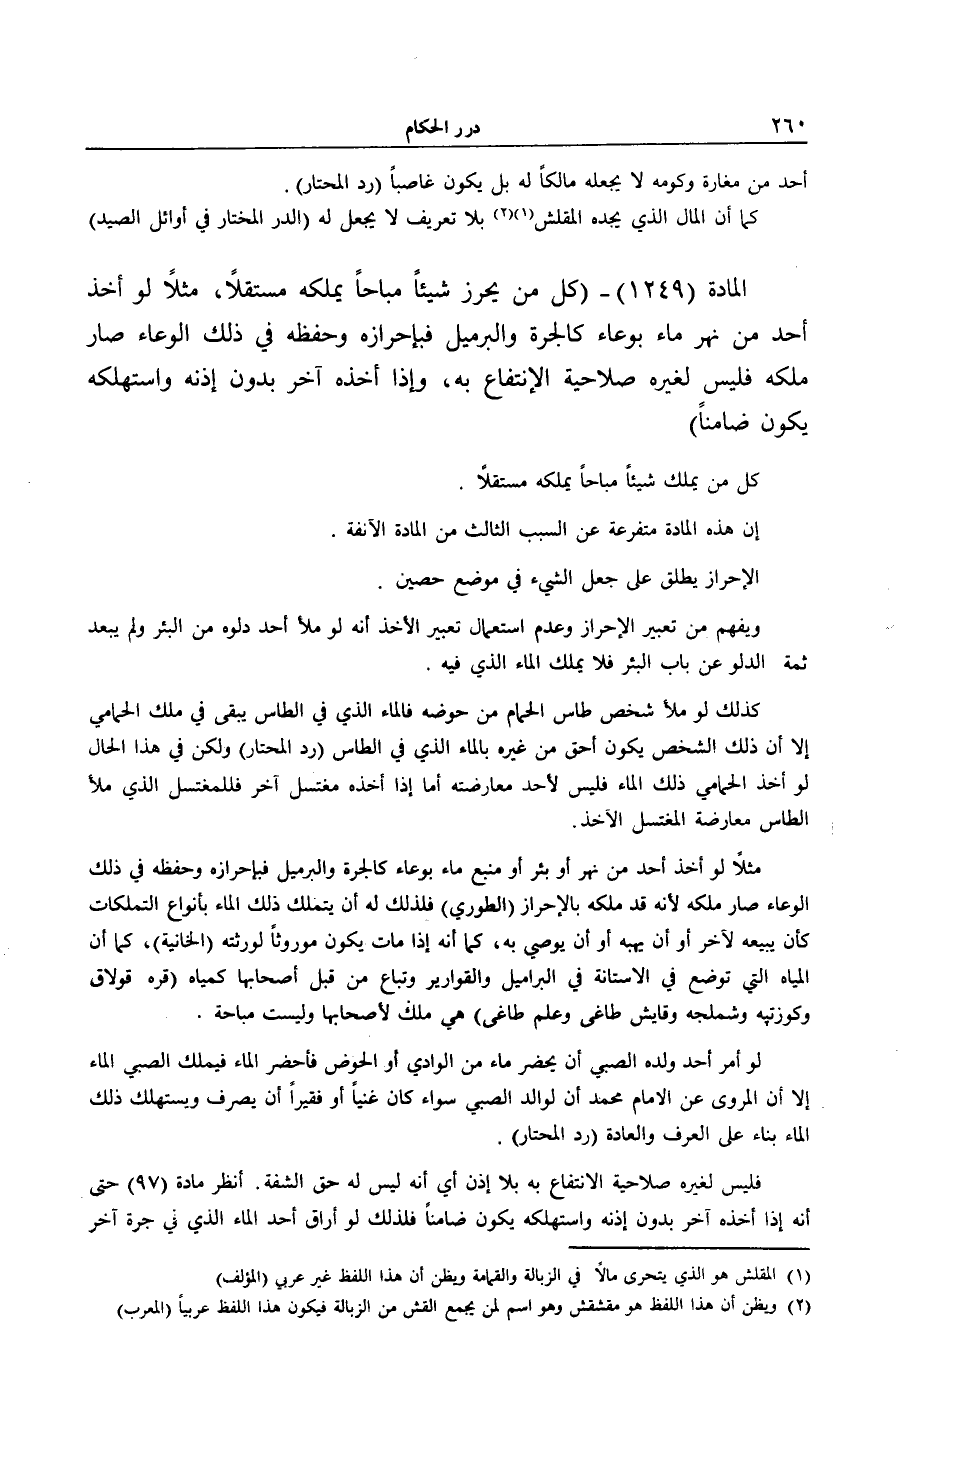 ٢٦٠ درر الحكام
أحد من مغارة وكومه لا يجعله مالكاً له بل يكون غاصباً (رد المحتار) .
كما أن المال الذي يجده المقلش(١)(٢) بلا تعريف لا يجعل له (الدر المختار في أوائل الصيد)
المادة (١٢٤٩) - (كل من يحرز شيئاً مباحاً يملكه مستقلاً، مثلاً لو أخذ
أحد من نهر ماء بوعاء كالجرة والبرميل فبإحرازه وحفظه في ذلك الوعاء صار
ملكه فليس لغيره صلاحية الإنتفاع به، وإذا أخذه آخر بدون إذنه واستهلكه
يكون ضامناً)
كل من يملك شيئاً مباحاً يملكه مستقلاً .
إن هذه المادة متفرعة عن السبب الثالث من المادة الآنفة .
الإحراز يطلق على جعل الشيء في موضع حصين .
ويفهم من تعبير الإحراز وعدم استعمال تعبير الأخذ أنه لو ملأ أحد دلوه من البئر ولم يبعد
ثمة الدلو عن باب البئر فلا يملك الماء الذي فيه .
كذلك لو ملأ شخص طاس الحمام من حوضه فالماء الذي في الطاس يبقى في ملك الحمامي
إلا أن ذلك الشخص يكون أحق من غيره بالماء الذي في الطاس (رد المحتار) ولكن في هذا الحال
لو أخذ الحمامي ذلك الماء فليس لأحد معارضته أما إذا أخذه مغتسل آخر فللمغتسل الذي ملأ
الطاس معارضة المغتسل الآخذ.
مثلاً لو أخذ أحد من نهر أو بئر أو منبع ماء بوعاء كالجرة والبرميل فبإحرازه وحفظه في ذلك
الوعاء صار ملكه لأنه قد ملكه بالإحراز (الطوري) فلذلك له أن يتملك ذلك الماء بأنواع التملكات
كأن يبيعه لآخر أو أن يهبه أو أن يوصي به، كما أنه إذا مات يكون موروثاً لورثته (الخانية)، كما أن
المياه التي توضع في الاستانة في البراميل والقوارير وتباع من قبل أصحابها كمياه (قره قولاق
وكوزتپه وشملجه وقايش طاغى وعلم طاغى) هي ملك لأصحابها وليست مباحة .
لو أمر أحد ولده الصبي أن يحضر ماء من الوادي أو الحوض فأحضر الماء فيملك الصبي الماء
إلا أن المروى عن الامام محمد أن لوالد الصبي سواء كان غنياً أو فقيراً أن يصرف ويستهلك ذلك
الماء بناء على العرف والعادة (رد المحتار) .
فليس لغيره صلاحية الانتفاع به بلا إذن أي أنه ليس له حق الشفة. أنظر مادة (٩٧) حتى
أنه إذا أخذه آخر بدون إذنه واستهلكه يكون ضامناً فلذلك لو أراق أحد الماء الذي في جرة آخر
(١) المقلش هو الذي يتحرى مالاً في الزبالة والقمامة ويظن أن هذا اللفظ غير عربي (المؤلف)
(٢) ويظن أن هذا اللفظ هو مقشقش وهو اسم لمن يجمع القش من الزبالة فيكون هذا اللفظ عربياً (المعرب)